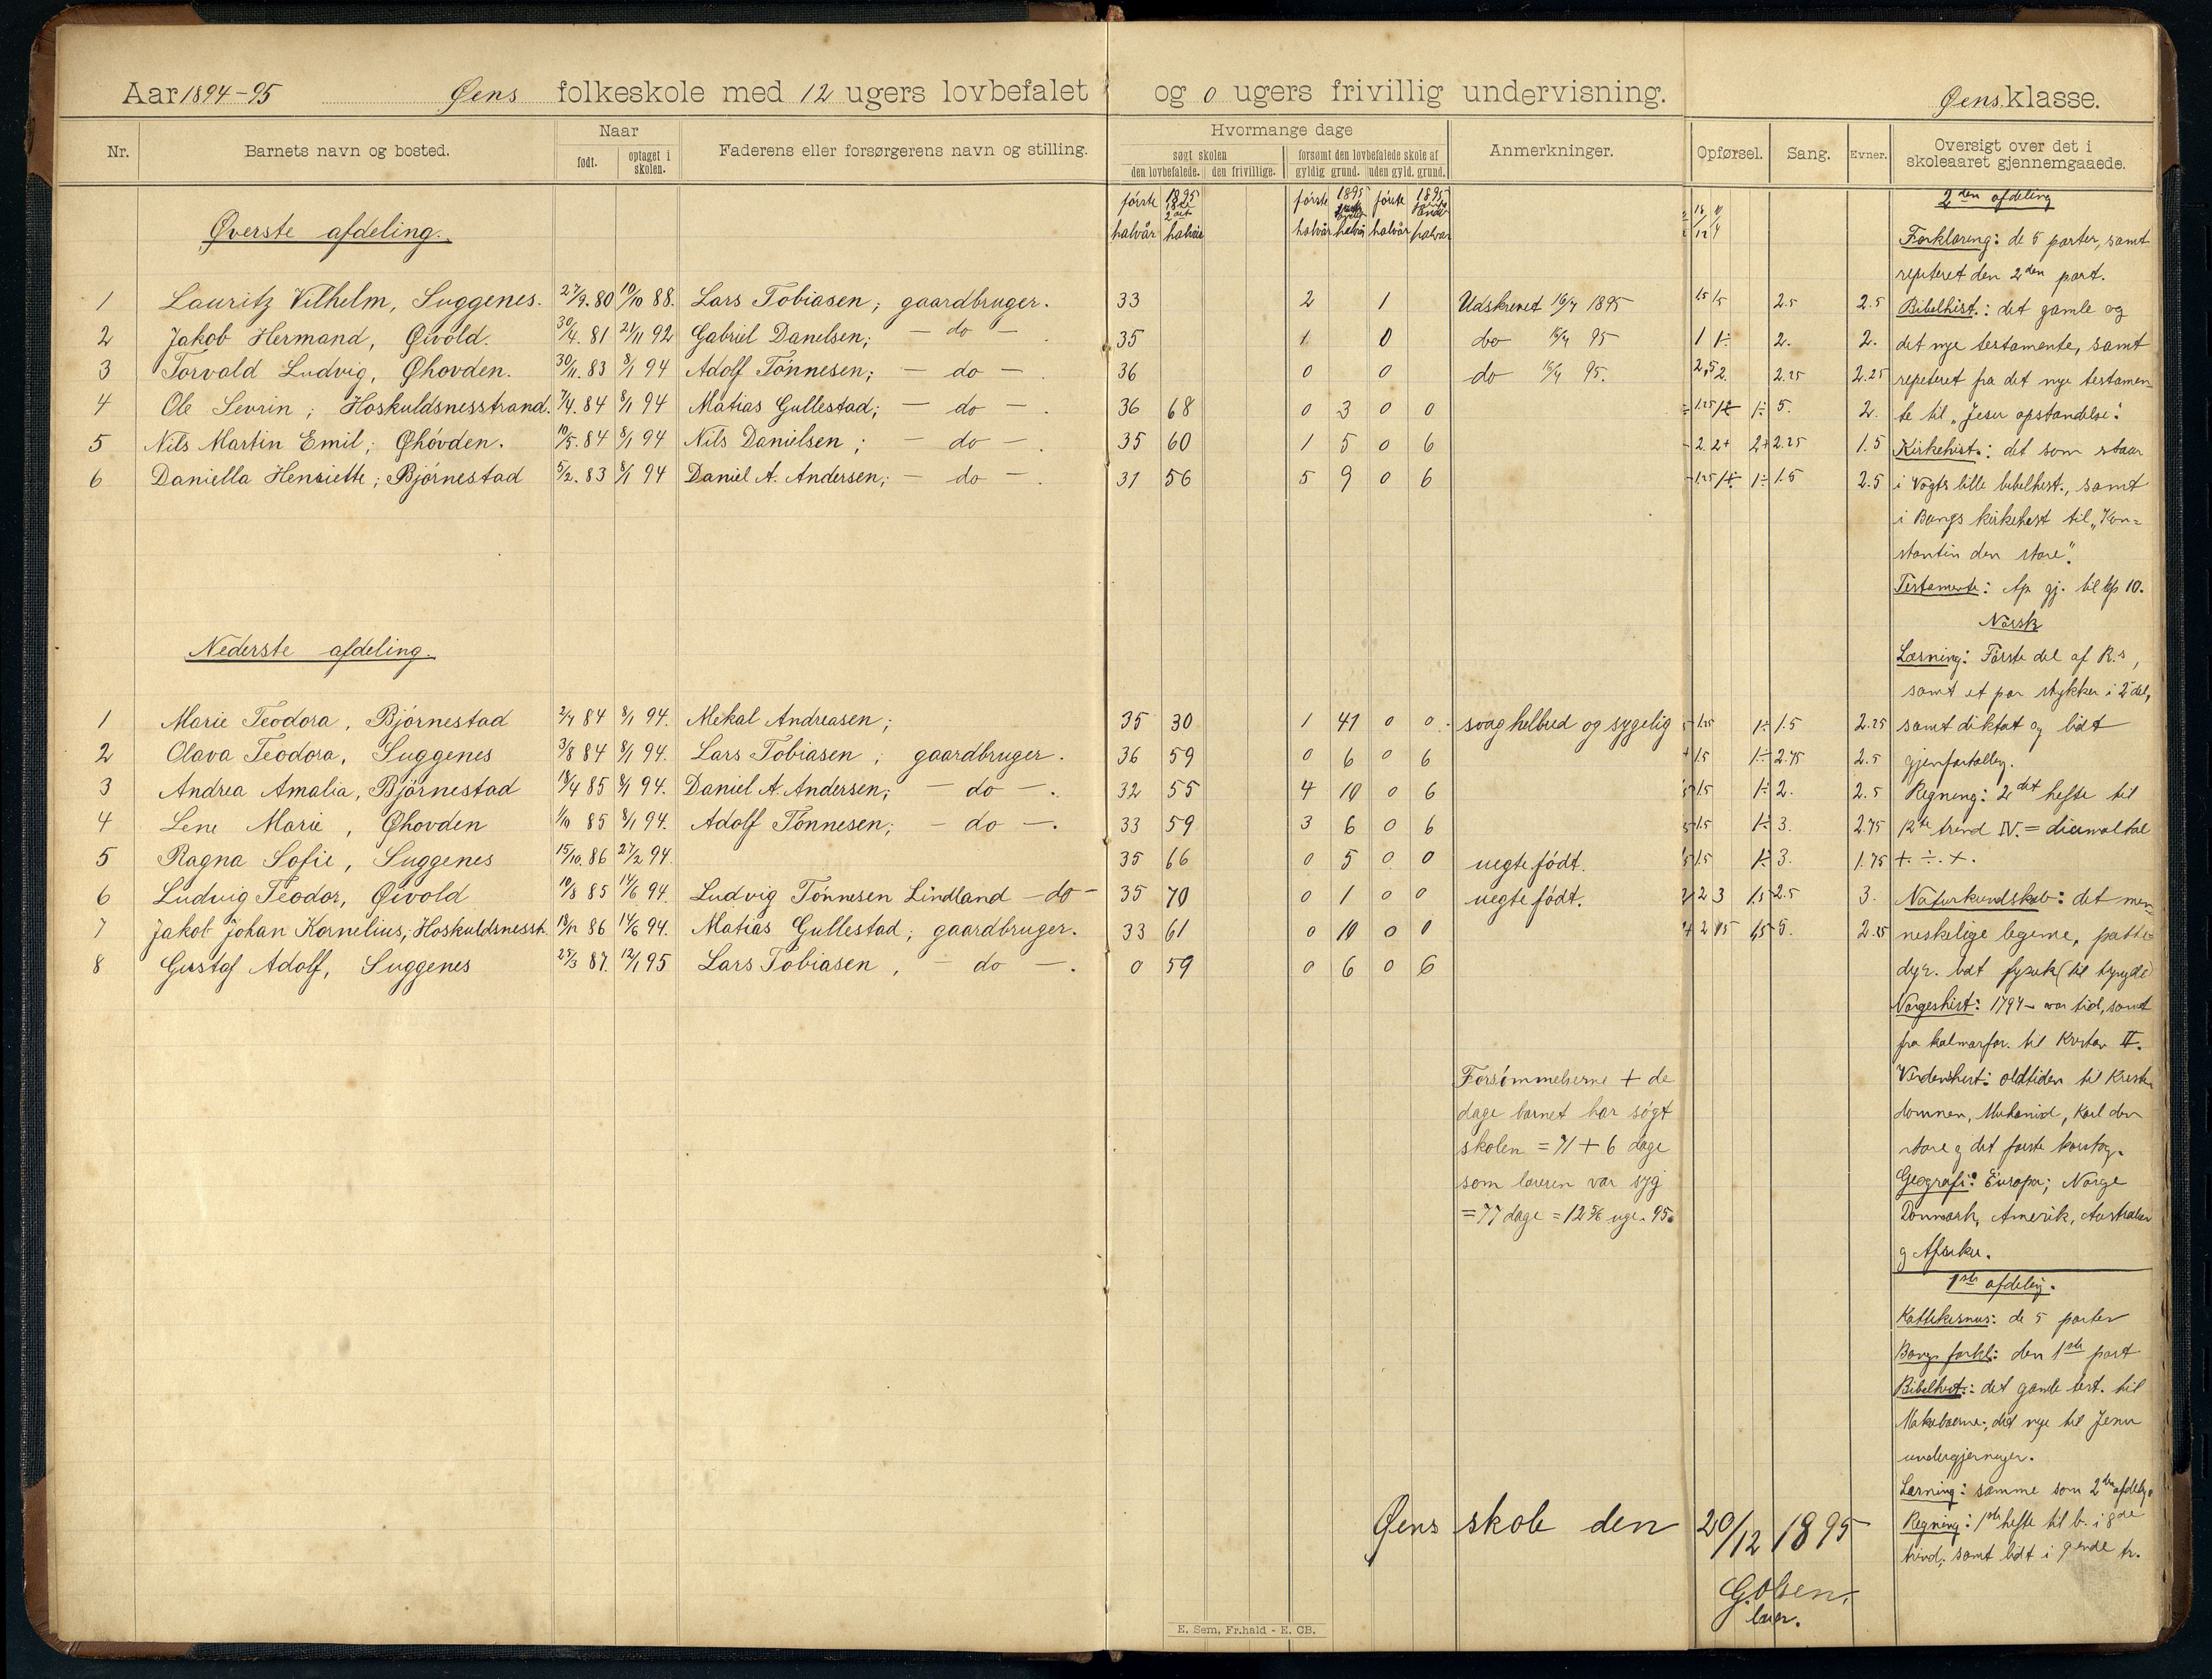 Aar 1894-95 Øens folkeskole med 12 ugers lovbefalet og 0 ugers frivillig undervisning. Øens klasse.
Nr. Barnets navn og bosted. Naar født. optaget i skolen. Faderens eller forsørgerens navn og stilling. Hvormange dage søgt skolen den lovbefalede. den frivillige. forsømt den lovbefalede skole af gyldig grund. uden gyld. grund. Anmerkninger. Opførsel. Sang. Evner. Oversigt over det i skoleaaret gjennemgaaede.
første halvår 1895 halvår første halvår 1895 halvår første halvår 1895 halvår
Øverste afdeling.
1 Lauritz Vilhelm, Suggenes. 27/9. 80 10/10 88. Lars Tobiasen; gaardbruger. 33 2 1 Udskrevet 16/4 1895 2.5 2.5
2 Jakob Hermand, Øivold. 30/4. 81 21/11 92 Gabriel Danelsen; — do — 35 1 0 do 16/4 95 2. 2.
3 Torvald Ludvig, Øhovden. 30/11. 83 8/1 94 Adolf Tønnesen; — do — 36 0 0 do 16/4 95. 2.25 2.25
4 Ole Sevrin; Hoskuldsnesstrand. 7/4. 84 8/1 94 Matias Gullestad; — do — 36 68 0 3 0 0 5. 2.
5 Nils Martin Emil; Øhövden. 10/5. 84 8/1 94 Nils Danielsen; — do — 35 60 1 5 0 6 2.25 1.5
6 Daniella Henriette; Bjørnestad 5/2. 83 8/1 94 Daniel A. Andersen; — do — 31 56 5 9 0 6 1.5 2.5
Nederste afdeling.
1 Marie Teodora, Bjørnestad 2/4 84 8/1 94. Mekal Andreasen; 35 30 1 41 0 0 svag helbred og sygelig 1.5 2.25
2 Olava Teodora, Suggenes 3/8 84 8/1 94. Lars Tobiasen; gaardbruger. 36 59 0 6 0 6 2.75 2.5
3 Andrea Amalia, Bjørnestad 18/4 85 8/1 94. Daniel A. Andersen; — do —. 32 55 4 10 0 6 2. 2.5
4 Lene Marie, Øhovden 1/10 85 8/1 94. Adolf Tønnesen; — do —. 33 59 3 6 0 6 3. 2.75
5 Ragna Sofie, Suggenes 15/10. 86 27/2 94. 35 66 0 5 0 0 uegte født. 3. 1.75
6 Ludvig Teodor, Øivold 10/8 85 14/6 94. Ludvig Tønnesen Lindland — do — 35 70 0 1 0 0 uegte født. 2.5 3.
7 Jakob Johan Kornelius; Hoskuldsnesst. 86 14/6 94. Matias Gullestad; gaardbruger. 33 61 0 10 0 0 5. 2.25
8 Gustaf Adolf, Suggenes 25/3 87. 12/1 95 Lars Tobiasen, — do —. 0 59 0 6 0 6
Forsømmelserne + de
dage barnet har søgt
skolen = 71 + 6 dage
som læreren var syg
= 77 dage = 12 5/6 uge. 95.
2den afdeling
Forklaring: de 5 parter, samt
repeteret den 2den part.
Bibelhist.: det gamle og
det nye testamente, samt
repeteret fra det nye testamen
te til „Jesu opstandelse."
Kirkehist.: det som staar
i Vogts lille bibelhist., samt
i Bangs kirkehist til „Kon=
stantin den store".
Testamente: Ap gj. til kp 10.
Norsk
Læsning: Første del af R.s,
samt et par stykker i 2 del,
samt diktat og lidt
gjenfortælling.
Regning: 2det hefte til
12te trind IV. = diemaltal
+. ÷. ×.
Naturkundskab: det men
neskelige legeme, patte=
dyr. lidt fysik (til tyngde)
Norgeshist: 1794 — vor tid, samt
fra kalmarfor. til Kristian II.
Verdenshist: oldtiden til Kristen
dommen, Muhamed, Karl den
store og det første korstog.
Geografi: Europa; Norge
Danmark, Amerik, Australien
og Afrika.
1ste afdeling.
Kattekismus: de 5 parter
Bangs forkl.: den 1ste part
Bibelhist.: det gamle test. til
Makabæerne; det nye til Jesu
undergjerninger.
Læsning: samme som 2den afdeling.
Regning: 1ste hefte til b. i 8de
trind; samt lidt i 9ende tr.
Øens skole den 20/12 1895
G. Olsen.
lærer.
E. Sem, Fr.hald - E. CB.